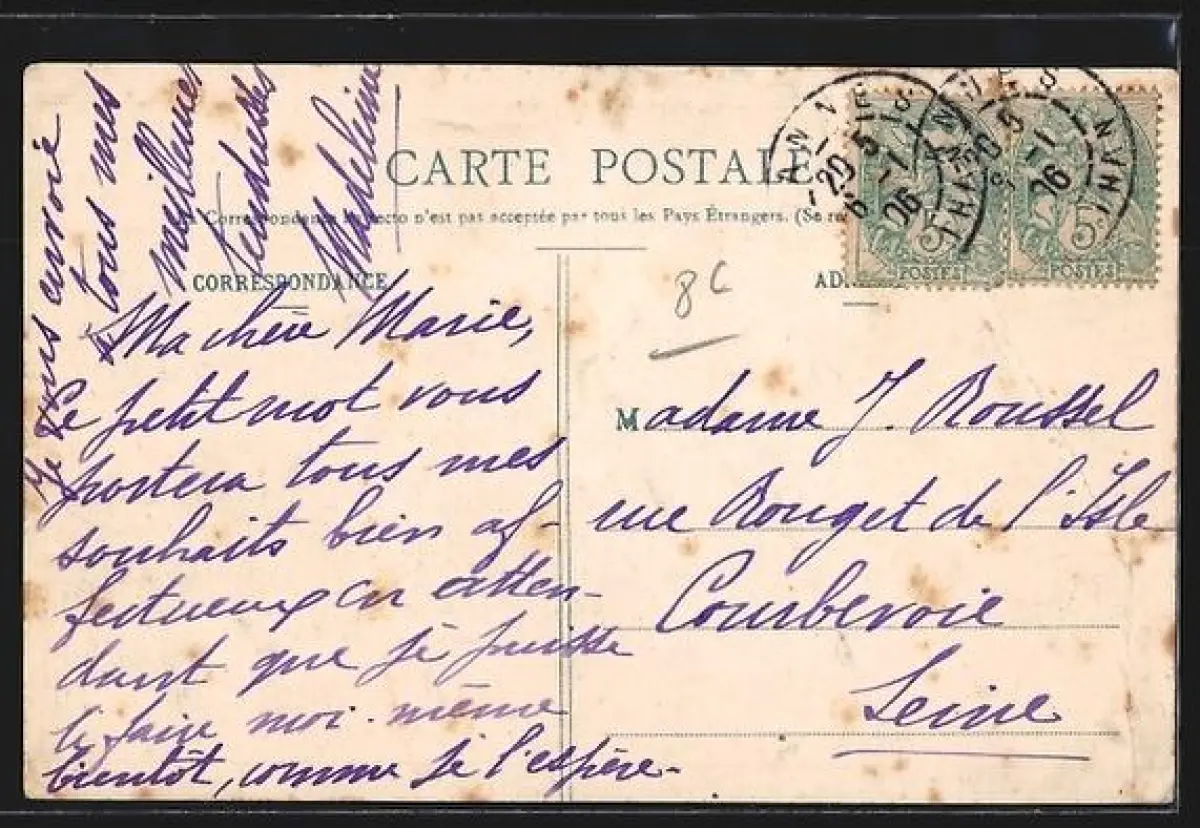 CARTE POSTALE
La Correspondance au recto n'est pas acceptée par tous les Pays Étrangers. (Se
CORRESPONDANCE
Ma chère Marie,
Ce petit mot vous
portera tous mes
souhaits bien af-
fectueux en atten-
dant que je puisse
le faire moi-même
bientôt, comme je l'espère-
Je vous envoie
à tous mes
meilleures
tendresses
Madeleine
8c
Madame J. Roussel
rue Rouget de l'Isle
Courbevoie
Seine
5c
POSTES
5c
POSTES
5 -1
06
5 -1
06